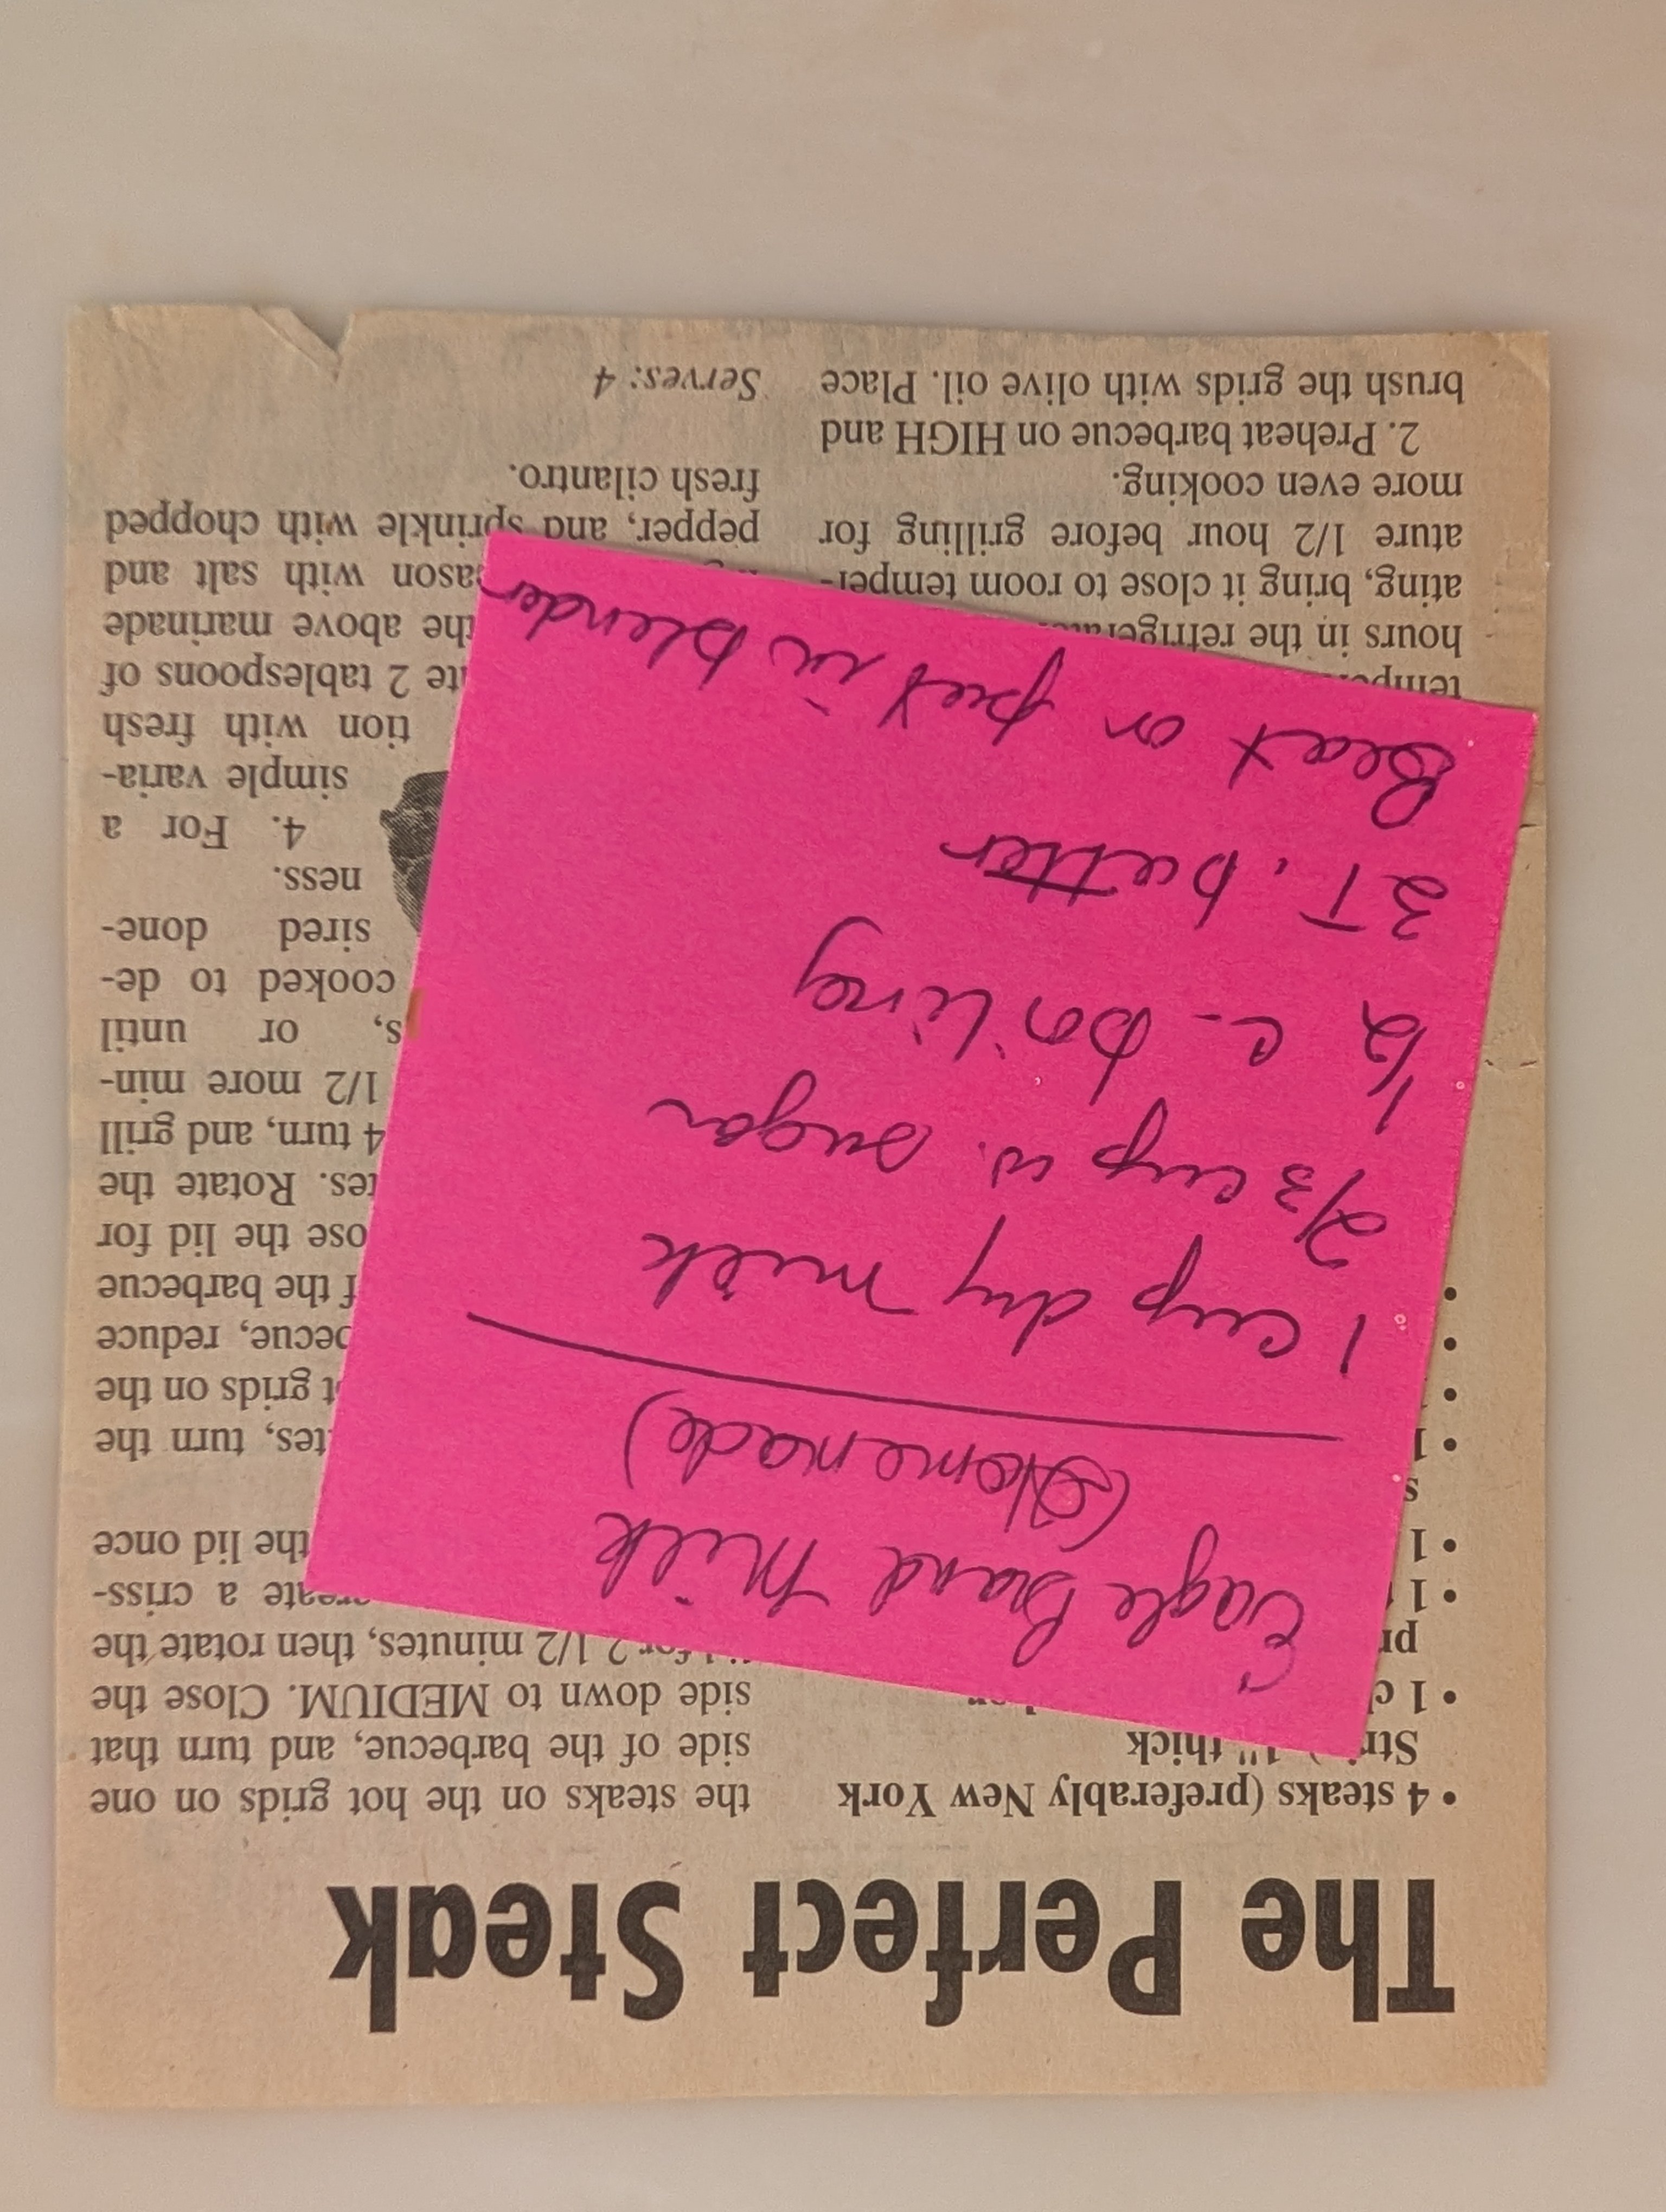 The Perfect Steak
• 4 steaks (preferably New York
thick
• 1
pr
• 1
• 1
s
• 1
•
•
•
hours in the
ating, bring it close to room temper-
ature 1/2 hour before grilling for
more even cooking.
2. Preheat barbecue on HIGH and
brush the grids with olive oil. Place
the steaks on the hot grids on one
side of the barbecue, and turn that
side down to MEDIUM. Close the
for 2 1/2 minutes, then rotate the
a criss-
the lid once
turn the
grids on the
reduce
the barbecue
the lid for
Rotate the
4 turn, and grill
1/2 more min-
or until
cooked to de-
sired done-
ness.
4. For a
simple varia-
tion with fresh
2 tablespoons of
the above marinade
with salt and
pepper, and sprinkle with chopped
fresh cilantro.
Serves: 4
Eagle Brand Milk
(Homemade)
1 cup dry milk
2/3 cup w. sugar
1/2 c. boiling
3 T. butter
Beat or put in blender